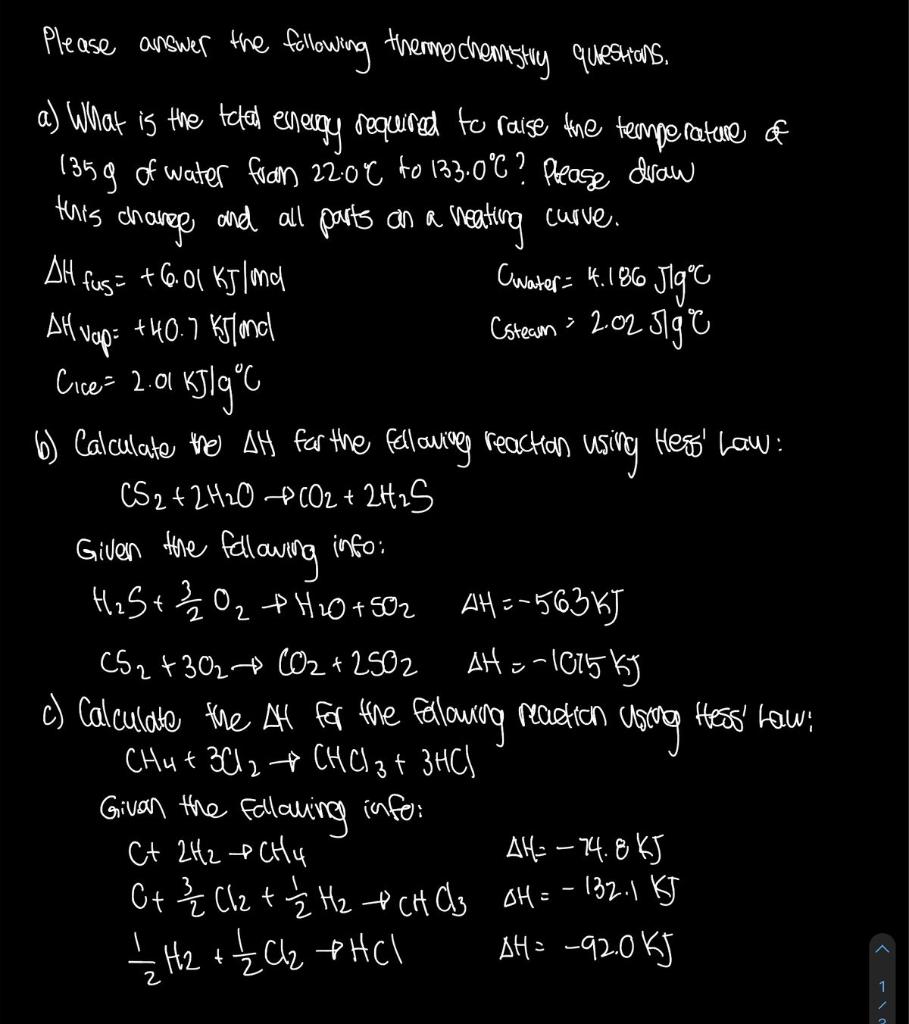 Please answer the following thermochemistry questions.
a) What is the total energy required to raise the temperature of
135 g of water from 22.0°C to 133.0°C? Please draw
this change and all parts on a heating curve.
ΔH fus = +6.01 KJ/mol
Cwater = 4.186 J/g°C
ΔH vap = +40.7 KJ/mol
Csteam = 2.02 J/g°C
Cice = 2.01 KJ/g°C
b) Calculate the ΔH for the following reaction using Hess' Law:
CS2 + 2H2O → CO2 + 2H2S
Given the following info:
H2S + 3/2 O2 → H2O + SO2 ΔH = -563 KJ
CS2 + 3O2 → CO2 + 2SO2 ΔH = -1075 KJ
c) Calculate the ΔH for the following reaction using Hess' Law:
CH4 + 3Cl2 → CHCl3 + 3HCl
Given the following info:
C + 2H2 → CH4 ΔH = -74.8 KJ
C + 3/2 Cl2 + 1/2 H2 → CHCl3 ΔH = -132.1 KJ
1/2 H2 + 1/2 Cl2 → HCl ΔH = -92.0 KJ
1
/